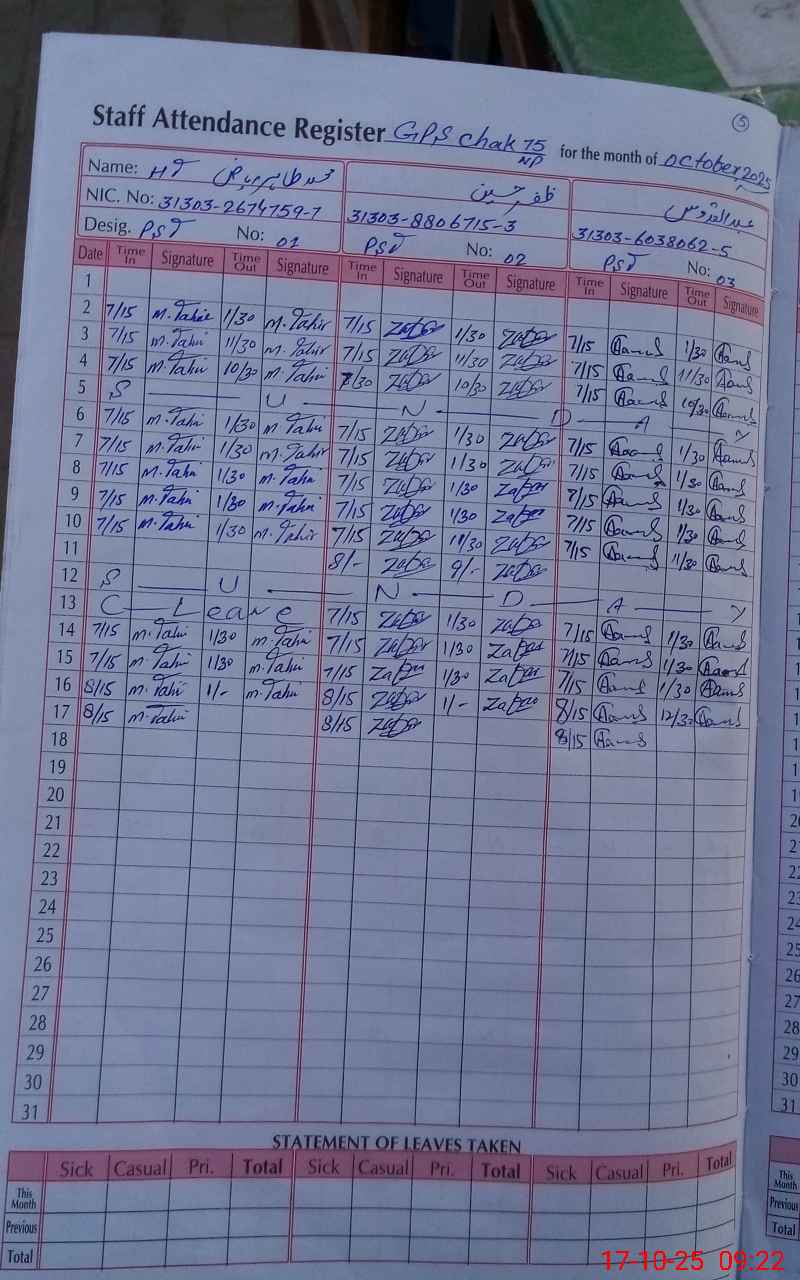 5
Staff Attendance Register GPS Chak 75 NP for the month of October 2025
Name: HT محمد طاہر ریاض ظفر حسین عبدالقدوس
NIC. No: 31303-2674759-7 31303-8806715-3 31303-6038062-5
Desig. PST No: 01 PST No: 02 PST No: 03
Date Time In Signature Time Out Signature Time In Signature Time Out Signature Time In Signature Time Out Signature
1
2 7/15 M.Tahir 1/30 M.Tahir 7/15 Zafar 1/30 Zafar 7/15 1/30
3 7/15 M.Tahir 11/30 M.Tahir 7/15 Zafar 11/30 Zafar 7/15 11/30
4 7/15 M.Tahir 10/30 M.Tahir Zafar 10/30 Zafar 7/15 10/30
5 S U N D A Y
6 7/15 M.Tahir 1/30 M.Tahir 7/15 Zafar 1/30 Zafar 7/15 1/30
7 7/15 M.Tahir 1/30 M.Tahir 7/15 Zafar 1/30 Zafar 7/15 1/30
8 7/15 M.Tahir 1/30 M.Tahir 7/15 Zafar 1/30 Zafar 1/30
9 7/15 M.Tahir 1/30 M.Tahir 7/15 Zafar 1/30 Zafar 7/15 1/30
10 7/15 M.Tahir 1/30 M.Tahir 7/15 Zafar 11/30 Zafar 7/15 11/30
11 8/- Zafar 9/- Zafar
12 S U N D A Y
13 C Leave 7/15 Zafar 1/30 Zafar 7/15 1/30
14 7/15 M.Tahir 1/30 M.Tahir 7/15 Zafar 1/30 Zafar 7/15 1/30
15 7/15 M.Tahir 1/30 M.Tahir 7/15 Zafar 1/30 Zafar 7/15 1/30
16 8/15 M.Tahir 1/- M.Tahir 8/15 Zafar 1/- Zafar 8/15 12/30
17 8/15 M.Tahir 8/15 Zafar 8/15
18
19
20
21
22
23
24
25
26
27
28
29
30
31
STATEMENT OF LEAVES TAKEN
Sick Casual Pri. Total Sick Casual Pri. Total Sick Casual Pri. Total
This Month
Previous
Total
This Month
Previous
Total
17-10-25 09:22